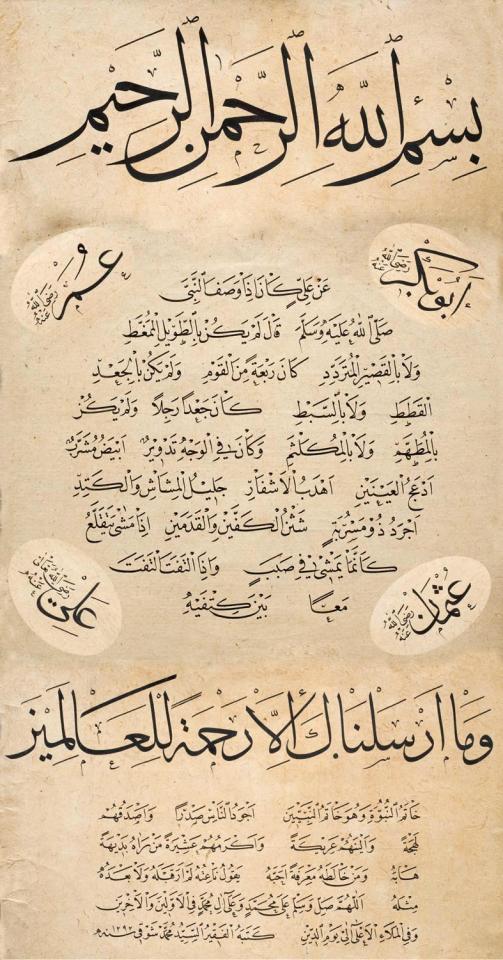 بسم الله الرحمن الرحيم
أبو بكر رضي الله عنه
عمر رضي الله عنه
عن علي كان اذا وصف النبي
صلى الله عليه وسلم قال لم يكن بالطويل المغط
ولا بالقصير المتردد كان ربعة من القوم ولم يكن بالجعد
القطط ولا بالسبط كان جعدا رجلا ولم يكن
بالمطهم ولا بالمكلثم وكان في الوجه تدوير ابيض مشرب
ادعج العينين اهدب الاشفار جليل المشاش والكتد
اجرد ذو مسربة شثن الكفين والقدمين اذا مشى يتقلع
كانما يمشي في صبب واذا التفت التفت
معا بين كتفيه
عثمان رضي الله عنه
علي
وما ارسلناك الا رحمة للعالمين
خاتم النبوة وهو خاتم النبيين اجود الناس صدرا واصدقهم
لهجة والينهم عريكة واكرمهم عشيرة من راه بديهة
هابه ومن خالطه معرفة احبه يقول ناعته لم ار قبله ولا بعده
مثله اللهم صل وسلم على محمد وعلى ال محمد في الاولين والاخرين
وفي الملاء الاعلى الى يوم الدين كتبه الفقير السيد محمد شوقي سنه